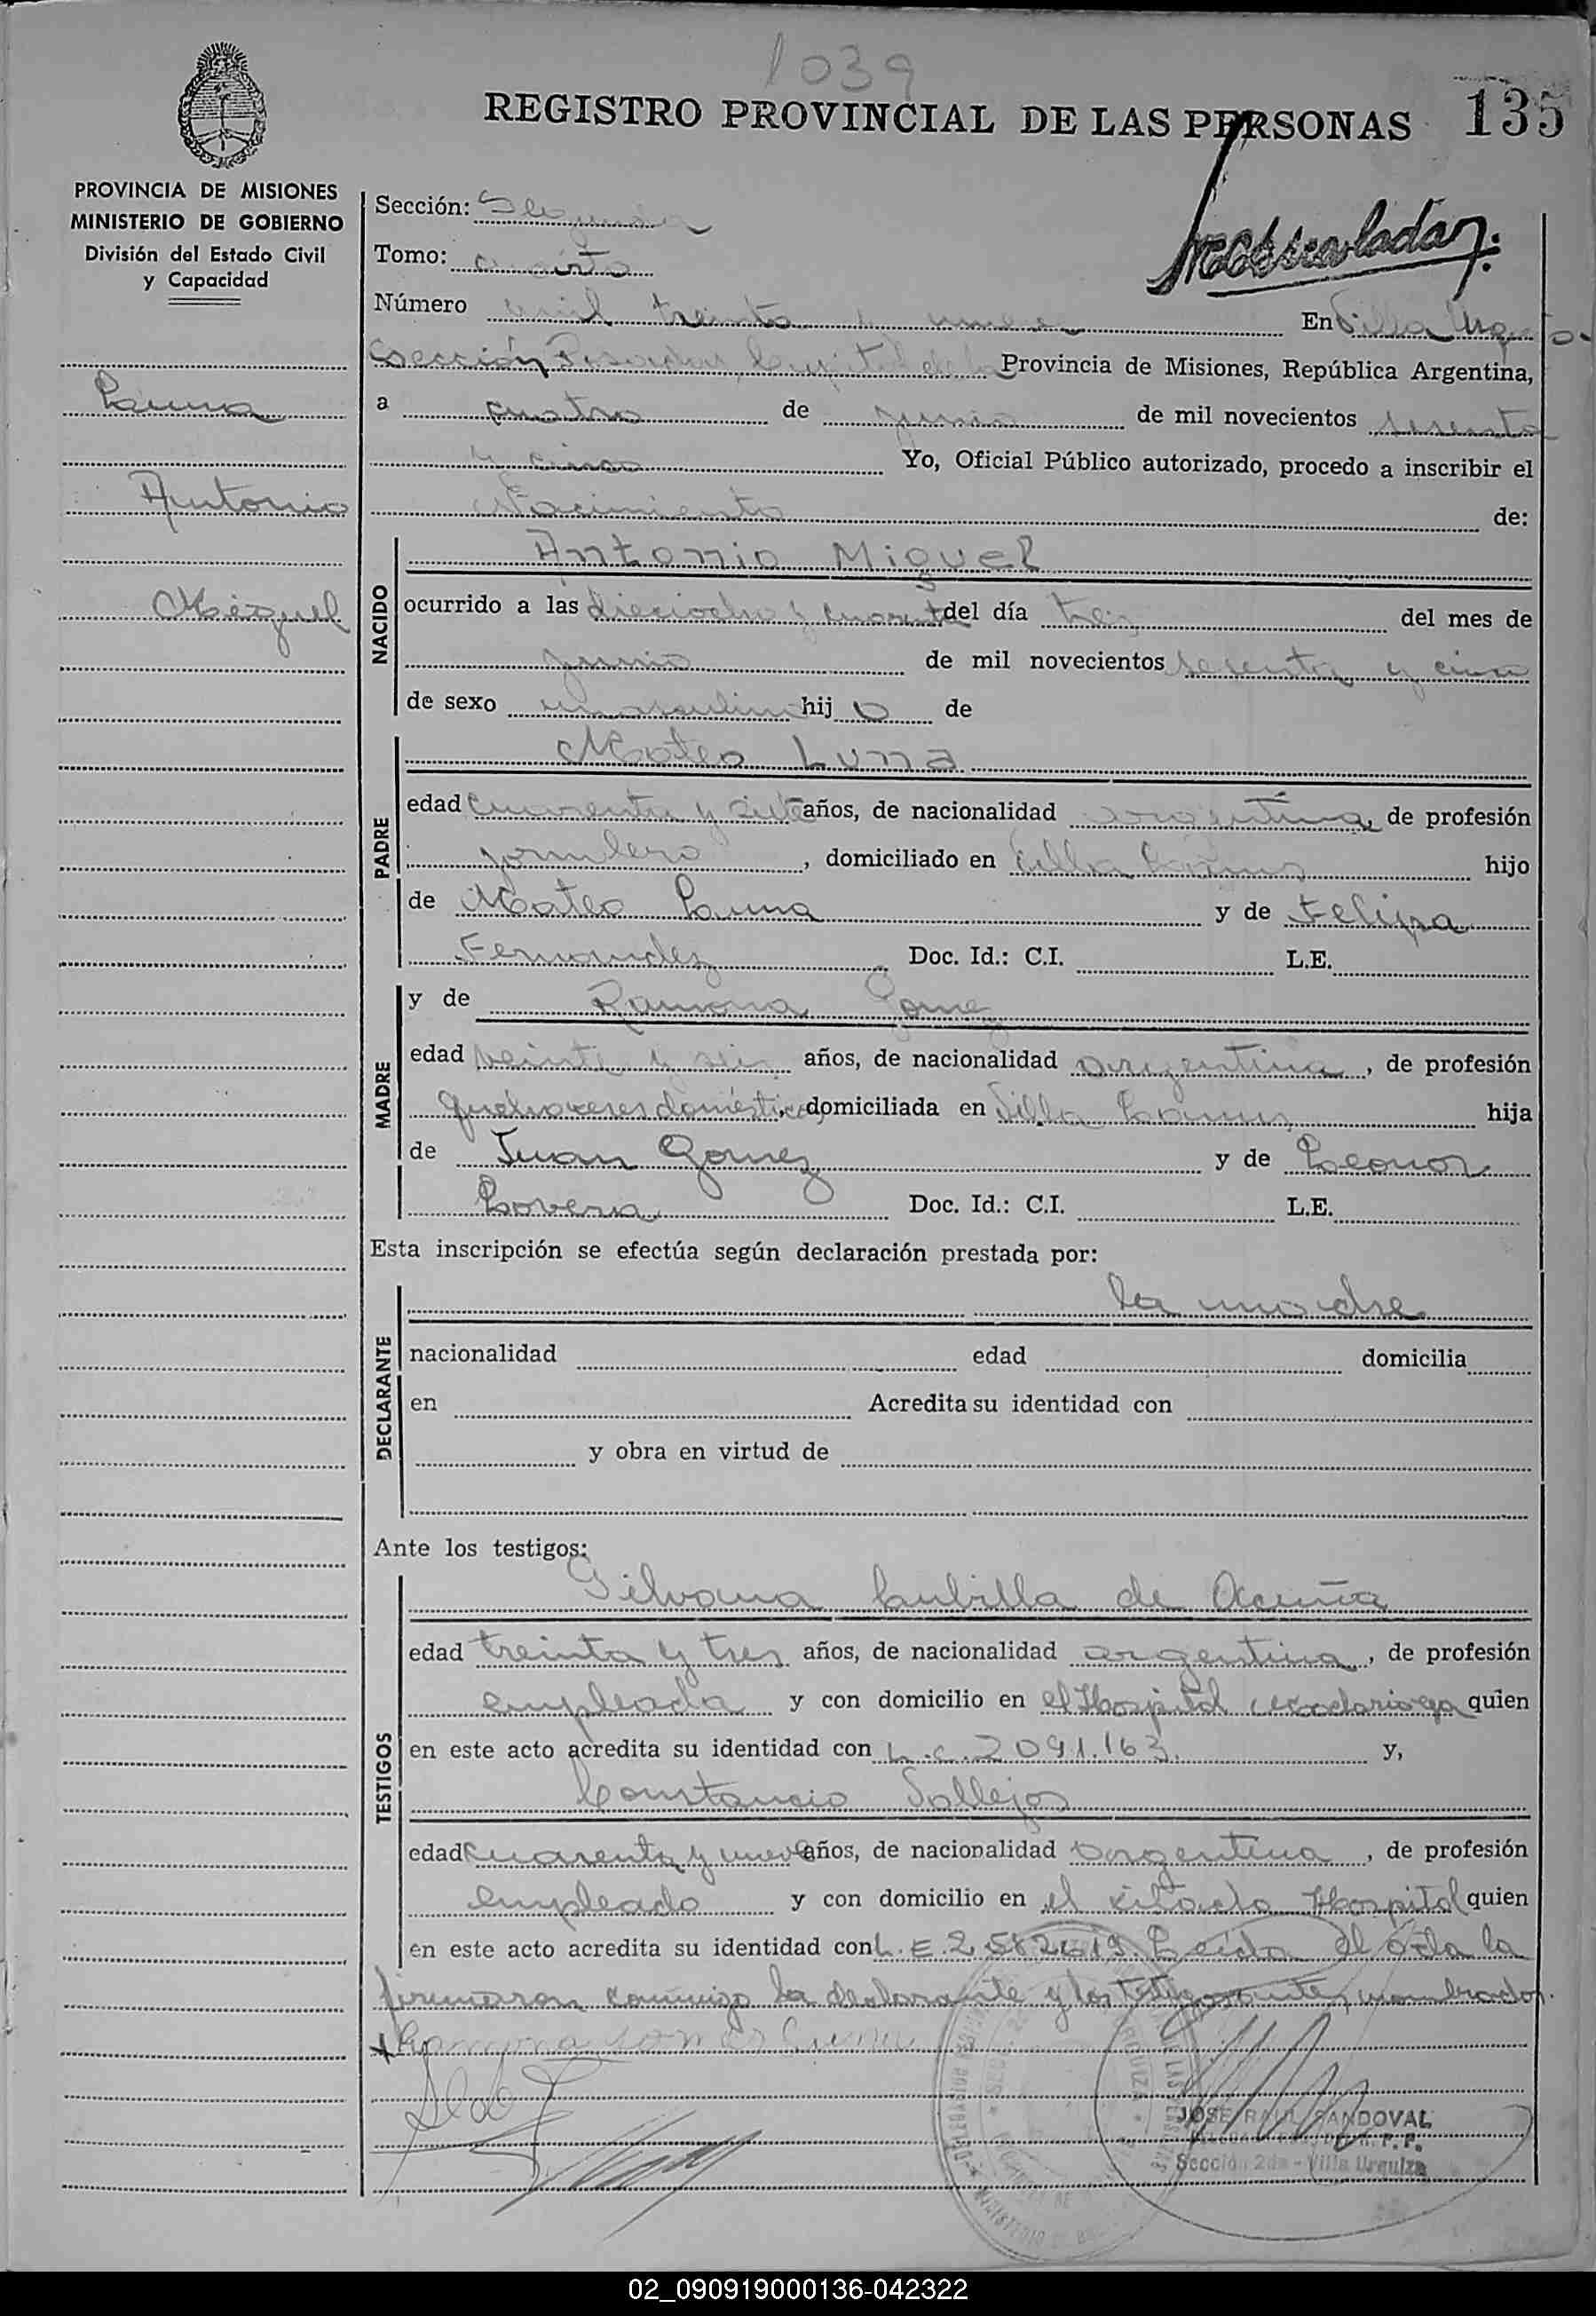 1039
REGISTRO PROVINCIAL DE LAS PERSONAS 135
PROVINCIA DE MISIONES
MINISTERIO DE GOBIERNO
División del Estado Civil
y Capacidad
Luna
Antonio
Miguel
Sección: Segunda
Tomo: cuarto
Número mil treinta y nueve En Villa Urquiza
Sección Posadas, Capital de la Provincia de Misiones, República Argentina,
a cuatro de junio de mil novecientos sesenta
y cinco Yo, Oficial Público autorizado, procedo a inscribir el
Nacimiento de:
NACIDO
Antonio Miguel
ocurrido a las dieciocho y cuarenta del día tres del mes de
junio de mil novecientos sesenta y cinco
de sexo masculino hijo de
PADRE
Mateo Luna
edad cuarenta y siete años, de nacionalidad argentina, de profesión
jornalero, domiciliado en Villa hijo
de Mateo Luna y de Felipa
Fernandez Doc. Id.: C.I. L.E.
MADRE
y de Ramona Gomez
edad veinte y seis años, de nacionalidad argentina, de profesión
quehaceres domésticos, domiciliada en Villa hija
de Juan Gomez y de Leonor
Lovera Doc. Id.: C.I. L.E.
Esta inscripción se efectúa según declaración prestada por:
DECLARANTE
la madre
nacionalidad edad domicilia
en Acredita su identidad con
y obra en virtud de
Ante los testigos:
TESTIGOS
Silvana Cubilla de Acuña
edad treinta y tres años, de nacionalidad argentina, de profesión
empleada y con domicilio en el Hospital Madariaga quien
en este acto acredita su identidad con L.C. 2091.163. y,
Constancio Vallejos
edad cuarenta y nueve años, de nacionalidad argentina, de profesión
empleado y con domicilio en el citado Hospital quien
en este acto acredita su identidad con L.E. 2.582.619. Leída el acta la
firmaron conmigo la declarante y los testigos ante nombrados.
Ramona Gomez Luna
JOSE RAUL SANDOVAL
Sección 2da - Villa Urquiza
02_090919000136-042322